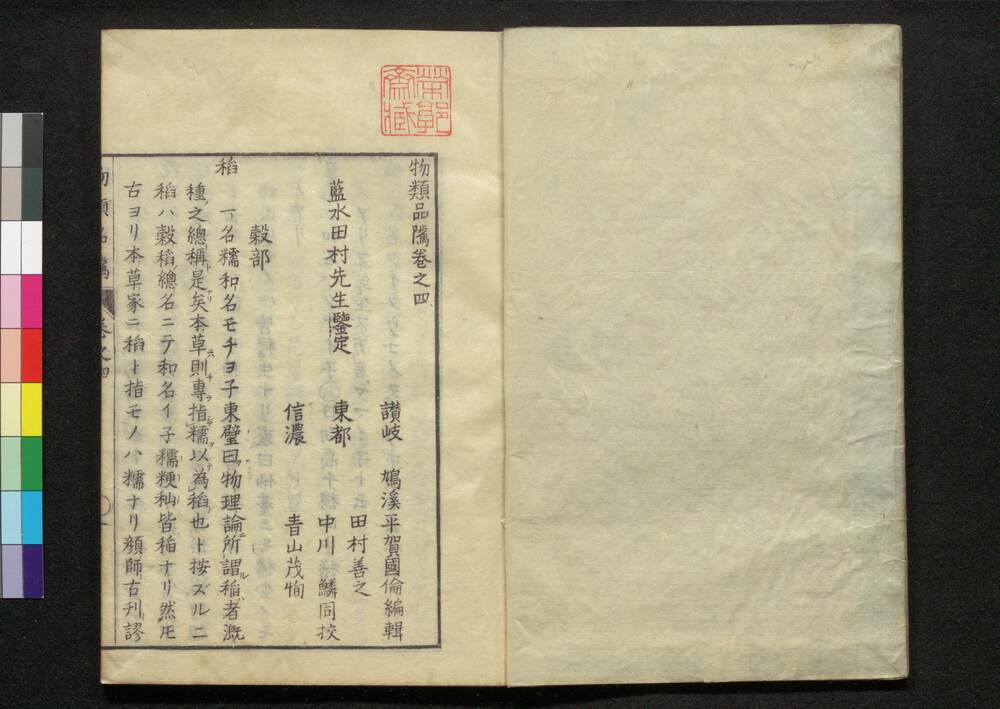 物類品隲巻之四
藍水田村先生鑒定
讃岐 鳩溪平賀國倫編輯
東都 田村善之
中川鱗同挍
信濃 青山茂恂
穀部
稻 一名糯和名モチヨ子東璧曰物理論所謂稻者溉
種之總稱是矣本草則專指糯以為稻也ト按ズルニ
稻ハ穀稻總名ニテ和名イ子糯粳秈皆稻ナリ然㔫
古ヨリ本草家ニ稻ト指モノハ糯ナリ顔師古刋謬
物類品隲 卷之四